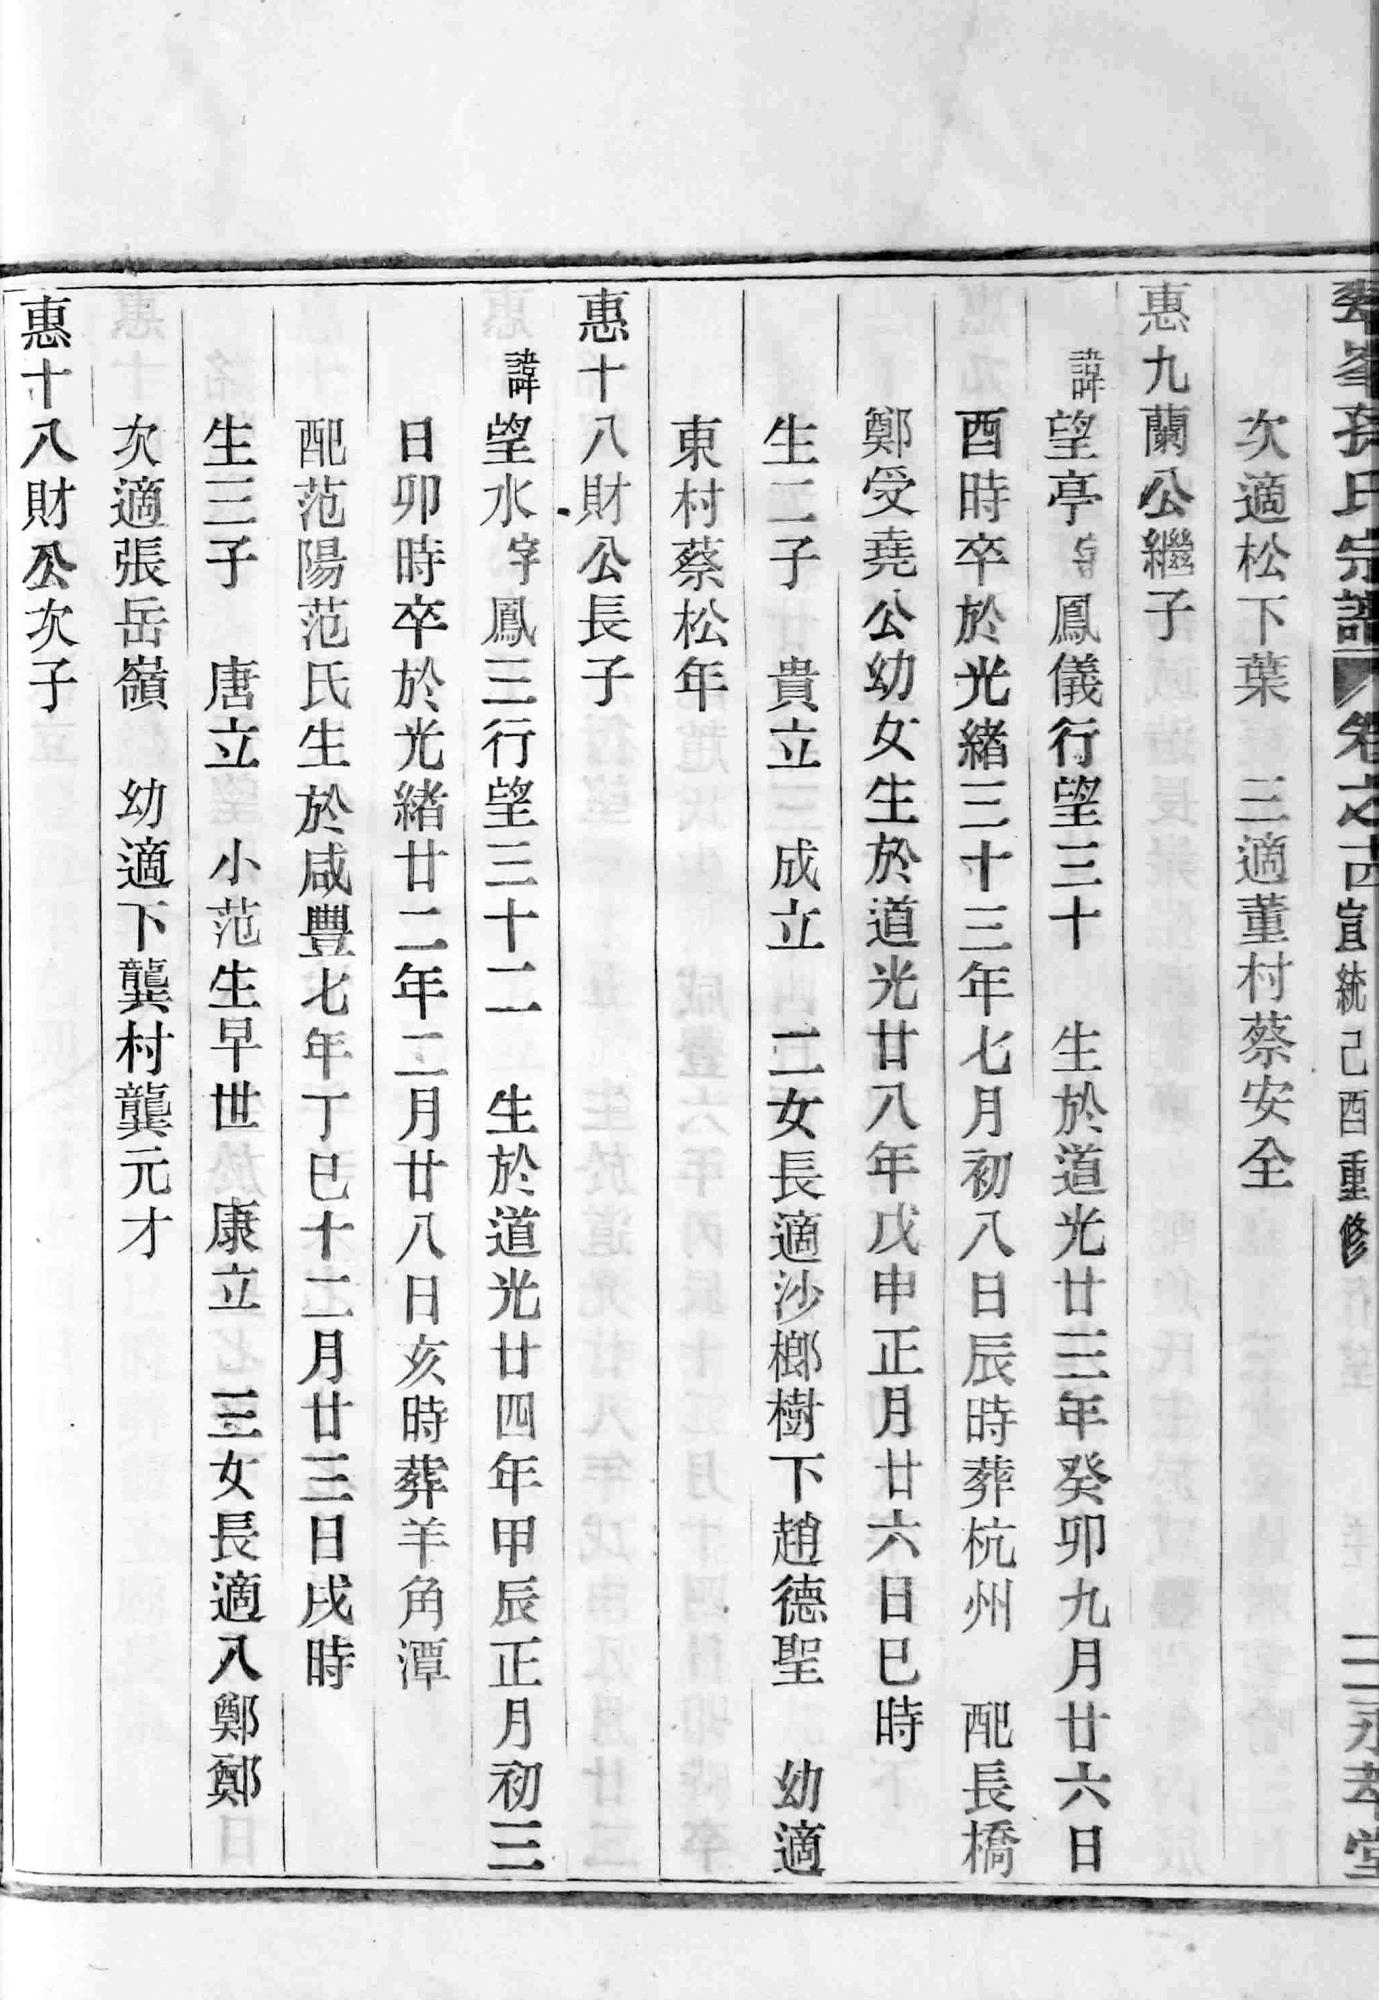 峯孫氏宗譜 卷之 宣統己酉重修 二 永孝堂
次適松下葉 三適董村蔡安全
惠九蘭公繼子
諱望亭字鳳儀行望三十 生於道光廿三年癸卯九月廿六日
酉時卒於光緒三十三年七月初八日辰時葬杭州 配長橋
鄭受堯公幼女生於道光廿八年戊申正月廿六日巳時
生二子 貴立 成立 二女長適沙榔樹下趙德聖 幼適
東村蔡松年
惠十八財公長子
諱望水字鳳三行望三十二 生於道光廿四年甲辰正月初三
日卯時卒於光緒廿二年二月廿八日亥時葬羊角潭
配范陽范氏生於咸豐七年丁巳十二月廿三日戌時
生三子 唐立 小范生早世 康立 三女長適八鄭鄭
次適張岳嶺 幼適下龔村龔元才
惠十八財公次子